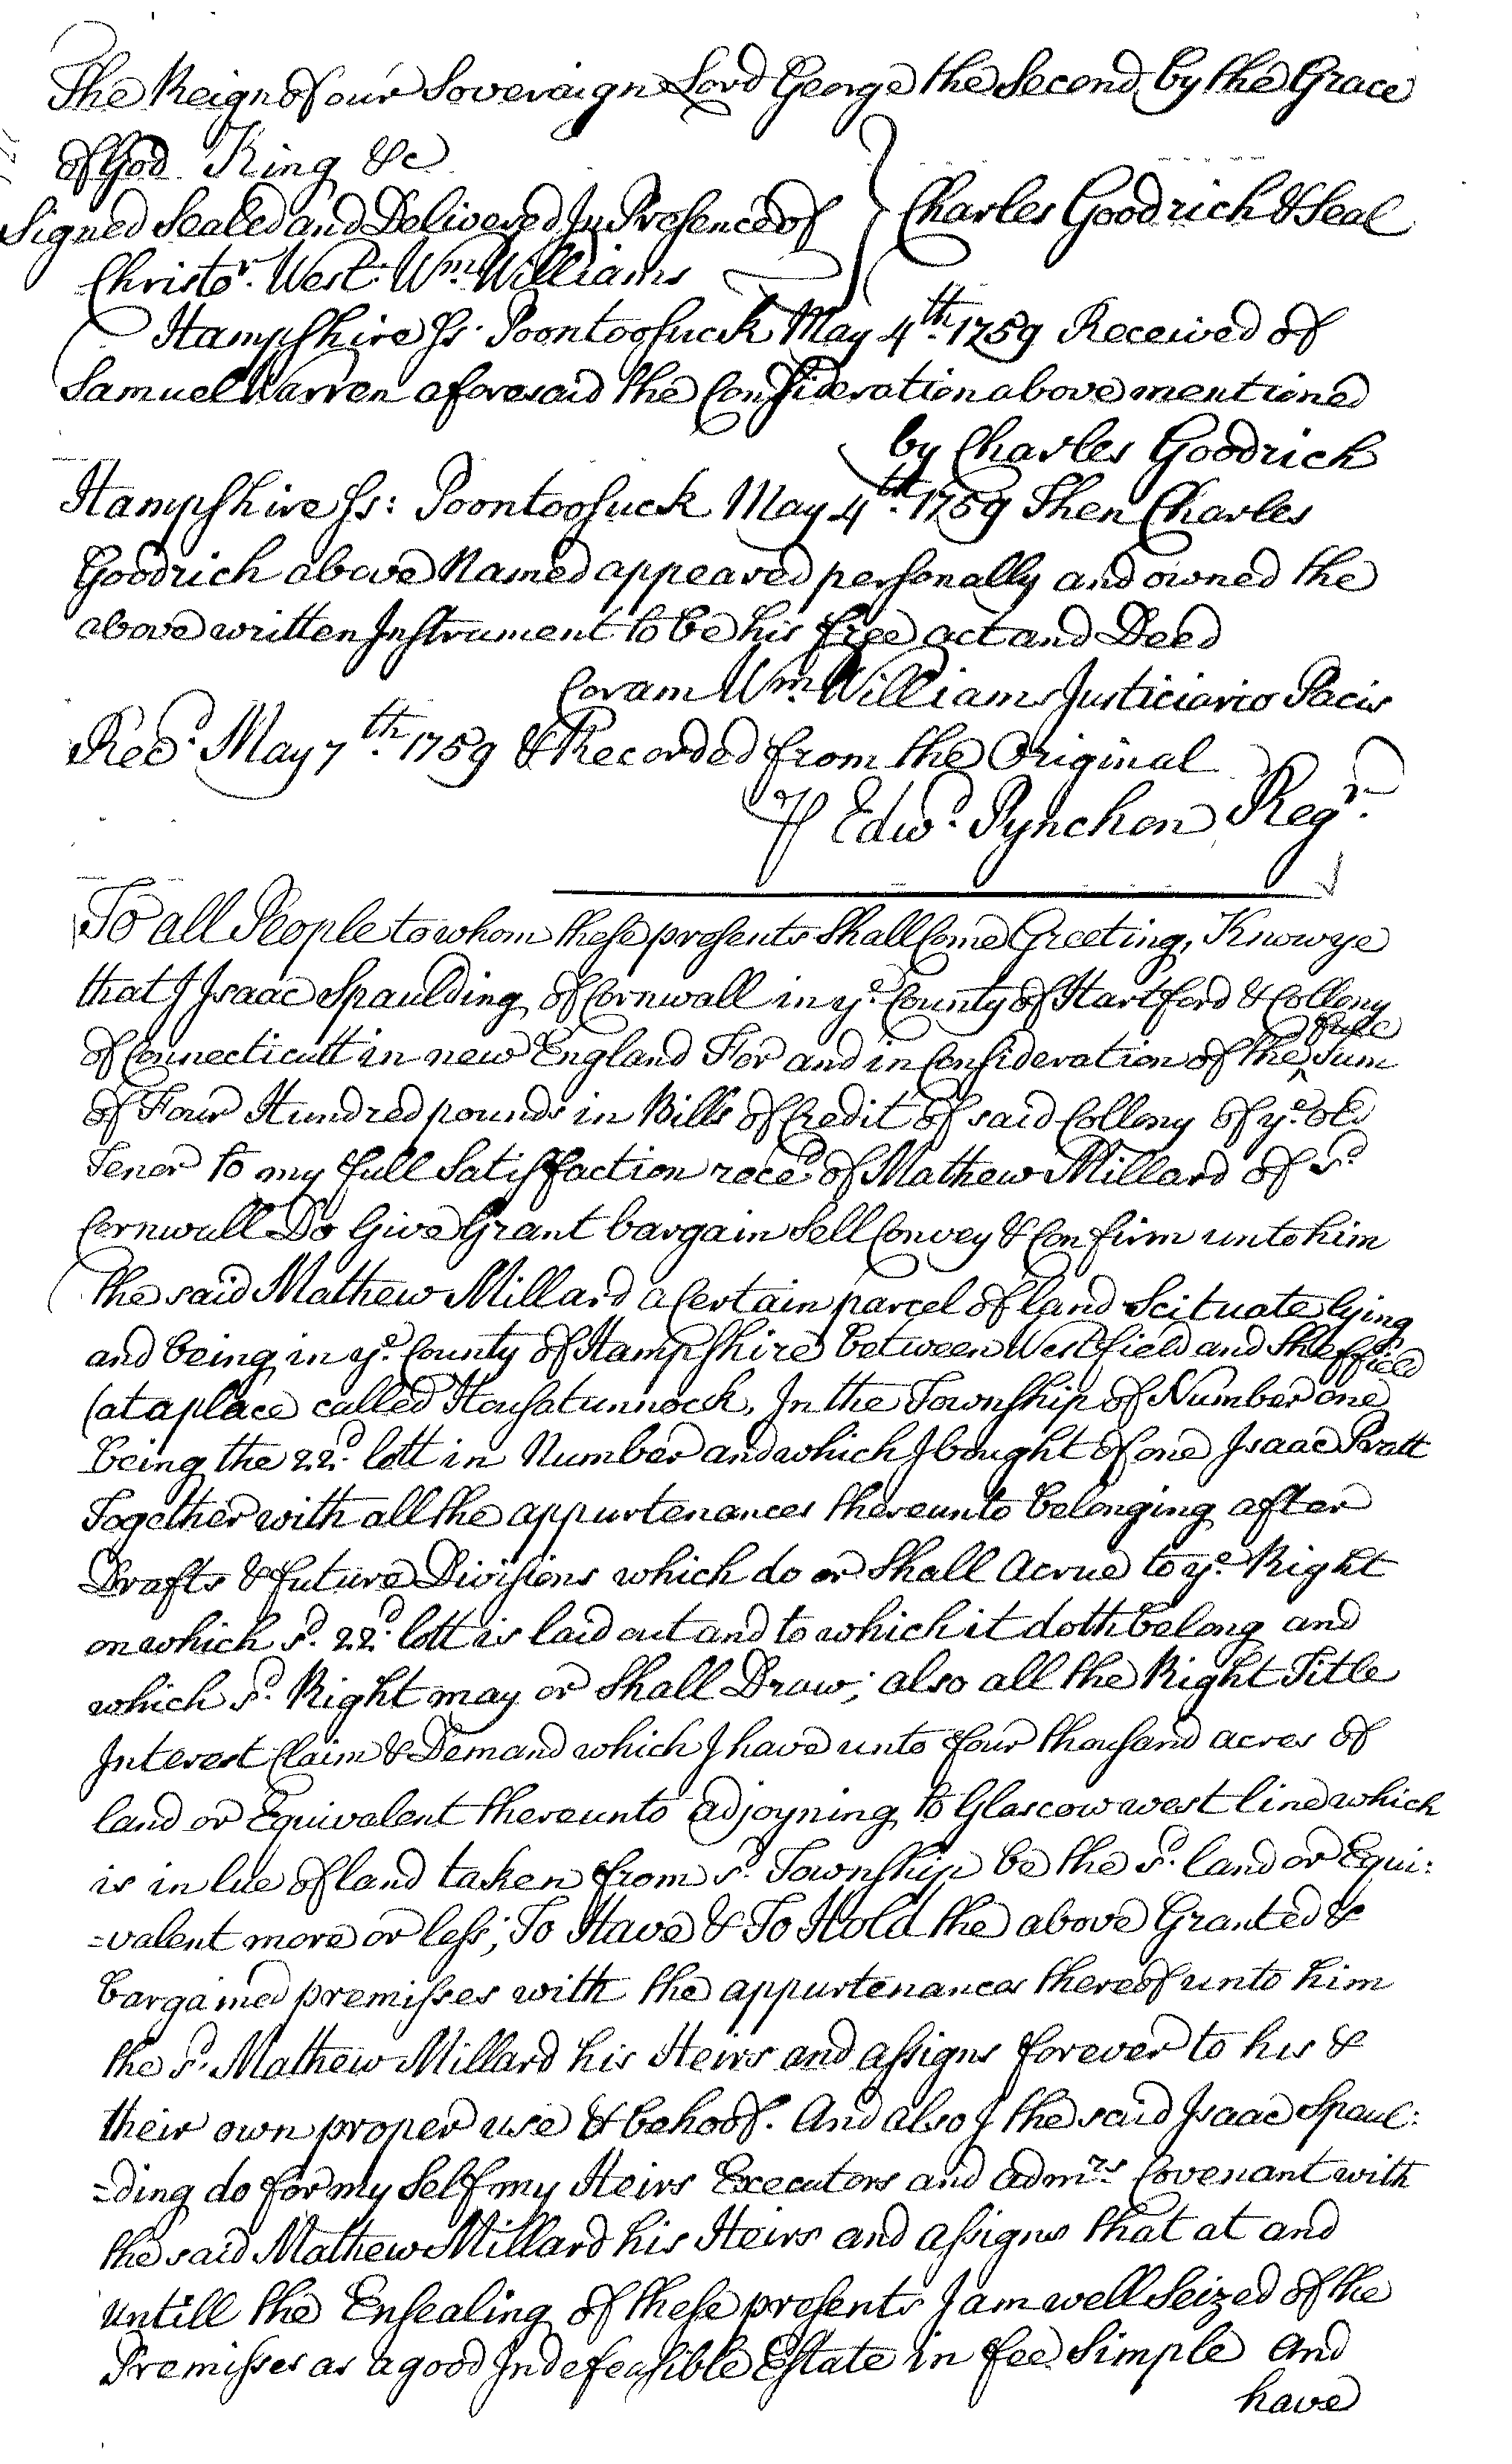 The Reign of our Soveraign Lord George the Second by the Grace
of God King &c
Signed Sealed and Delivered In Presence of } Charles Goodrich & Seal
Christor. West. Wm. Williams
Hampshire Ss. Poontoosuck May 4th. 1759 Received of
Samuel Warren aforesaid the Consideration above mentioned
by Charles Goodrich
Hampshire Ss: Poontoosuck May 4th. 1759 Then Charles
Goodrich above Named appeared personally and owned the
above written Instrument to be his free act and Deed
Coram Wm. Williams Justiciario Pacis
Recd. May 7th. 1759 & Recorded from the Original
₱ Edwd. Pynchon Regr.
To all People to whom these presents Shall Come Greeting, Know ye
that I Isaac Spaulding of Cornwall in ye. County of Hartford & Collony
of Connecticutt in new England For and in Consideration of the ^full Sum
of Four Hundred pounds in Bills of Credit of said Collony of ye. old
Tenor to my full Satisfaction recd. of Mathew Millard of sd.
Cornwall Do Give Grant bargain Sell Convey & Confirm unto him
the said Mathew Millard a Certain parcel of land Scituate lying
and being in ye. County of Hampshire between Westfield and Sheffield
(at a place called Housatunnock, In the Township of Number one
being the 22d. lott in Number and which I bought of one Isaac Pratt
Together with all the appurtenances thereunto belonging after
Drafts & future Divisions which do or Shall Acrue to ye. Right
on which sd. 22d. lott is laid out and to which it doth belong and
which sd. Right may or Shall Draw; also all the Right Title
Interest Claim & Demand which I have unto four thousand acres of
land or Equivalent thereunto adjoyning to Glascow west line which
is in lue of land taken from sd. Township be the sd. land or Equi:
=valent more or less; To Have & To Hold the above Granted &
bargained premisses with the appurtenances thereof unto him
the sd. Mathew Millard his Heirs and assigns forever to his &
their own proper use & behoof. And also I the said Isaac Spaul:
=ding do for my Self my Heirs Executors and admrs. Covenant with
the said Mathew Millard his Heirs and assigns that at and
untill the Ensealing of these presents I am well Seized of the
Premisses as a good Indefeasible Estate in fee Simple And
have